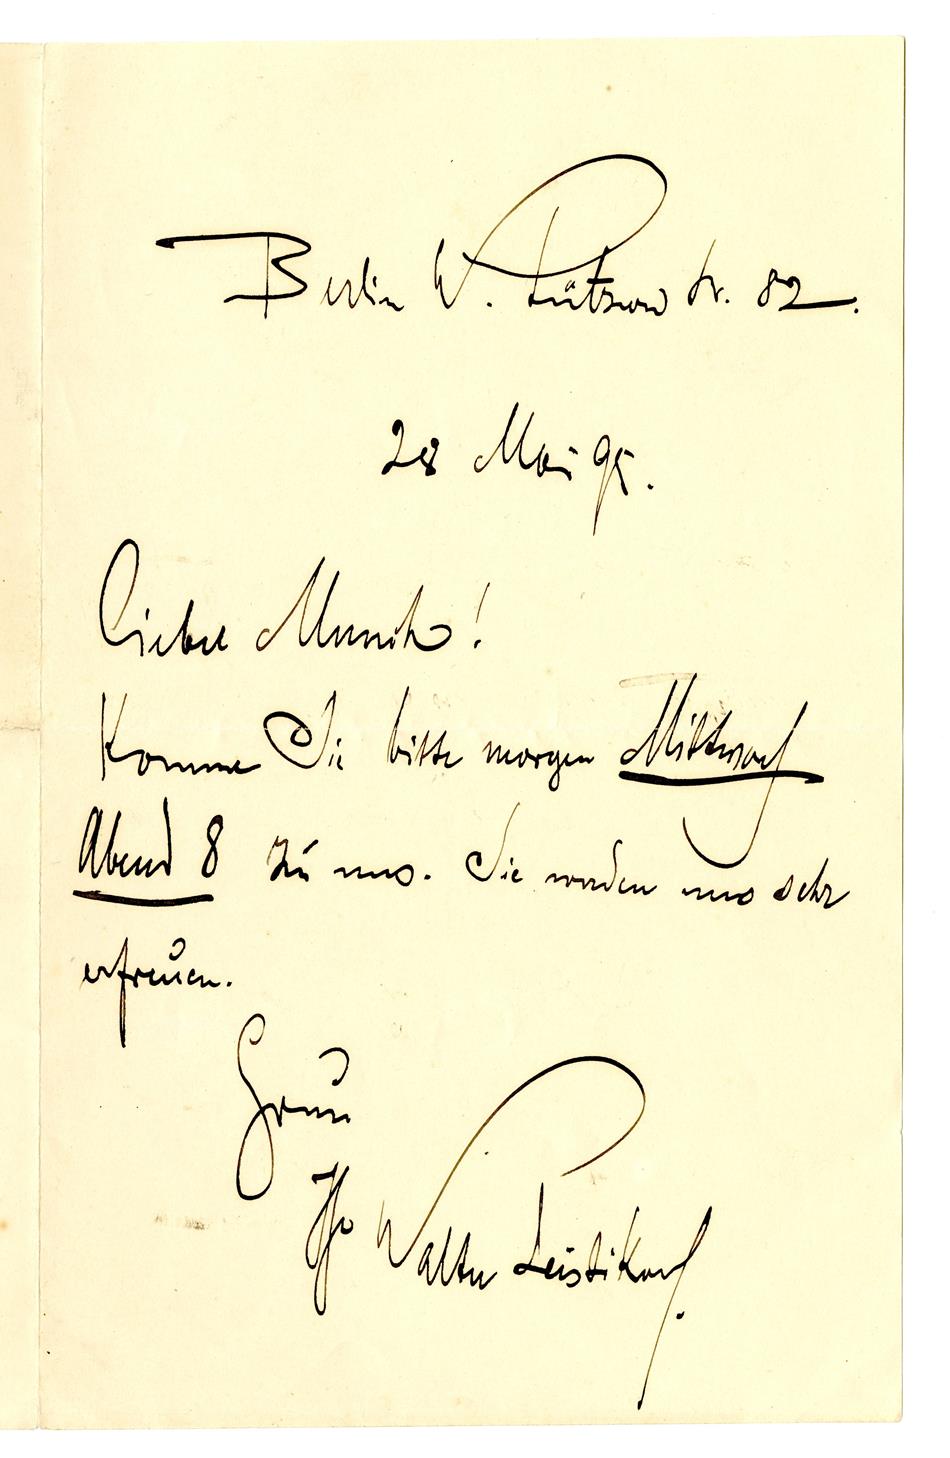 Berlin W. Lützow Str. 82.
28 Mai 95.
Lieber Munch!
Kommen Sie bitte morgen Mittwoch
Abend 8 zu uns. Sie werden uns sehr
erfreuen.
Gruss
Ihr Walter Leistikow.